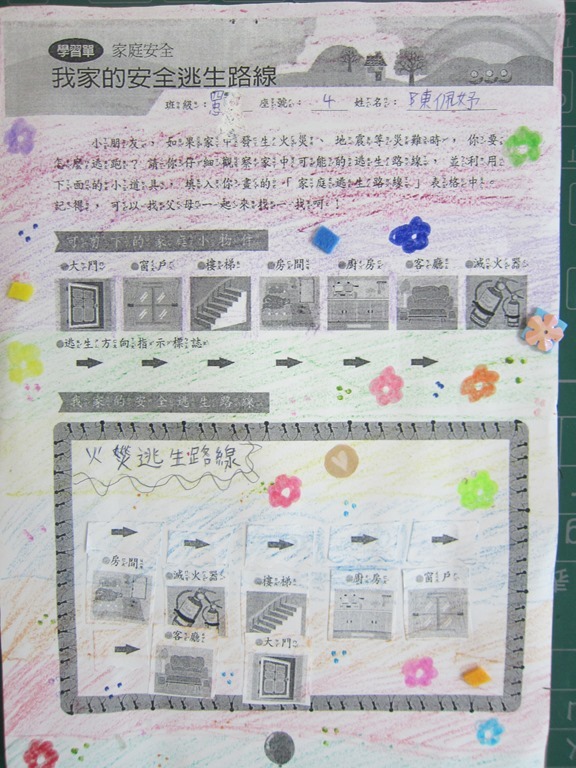 學習單 家庭安全
我家的安全逃生路線
班級： 座號： 4 姓名：陳佩妤
小朋友，如果家中發生火災、地震等災難時，你要
怎麼逃跑？請你仔細觀察家中可能的逃生路線，並利用
下面的小道具，填入你畫的「家庭逃生路線」表格中。
記得，可以找父母一起來找一找呵！
可剪下的家庭小物件
大門 窗戶 樓梯 房間 廚房 客廳 滅火器
逃生方向指示標誌
我家的安全逃生路線
火災逃生路線
房間 滅火器 樓梯 廚房 窗戶
客廳 大門